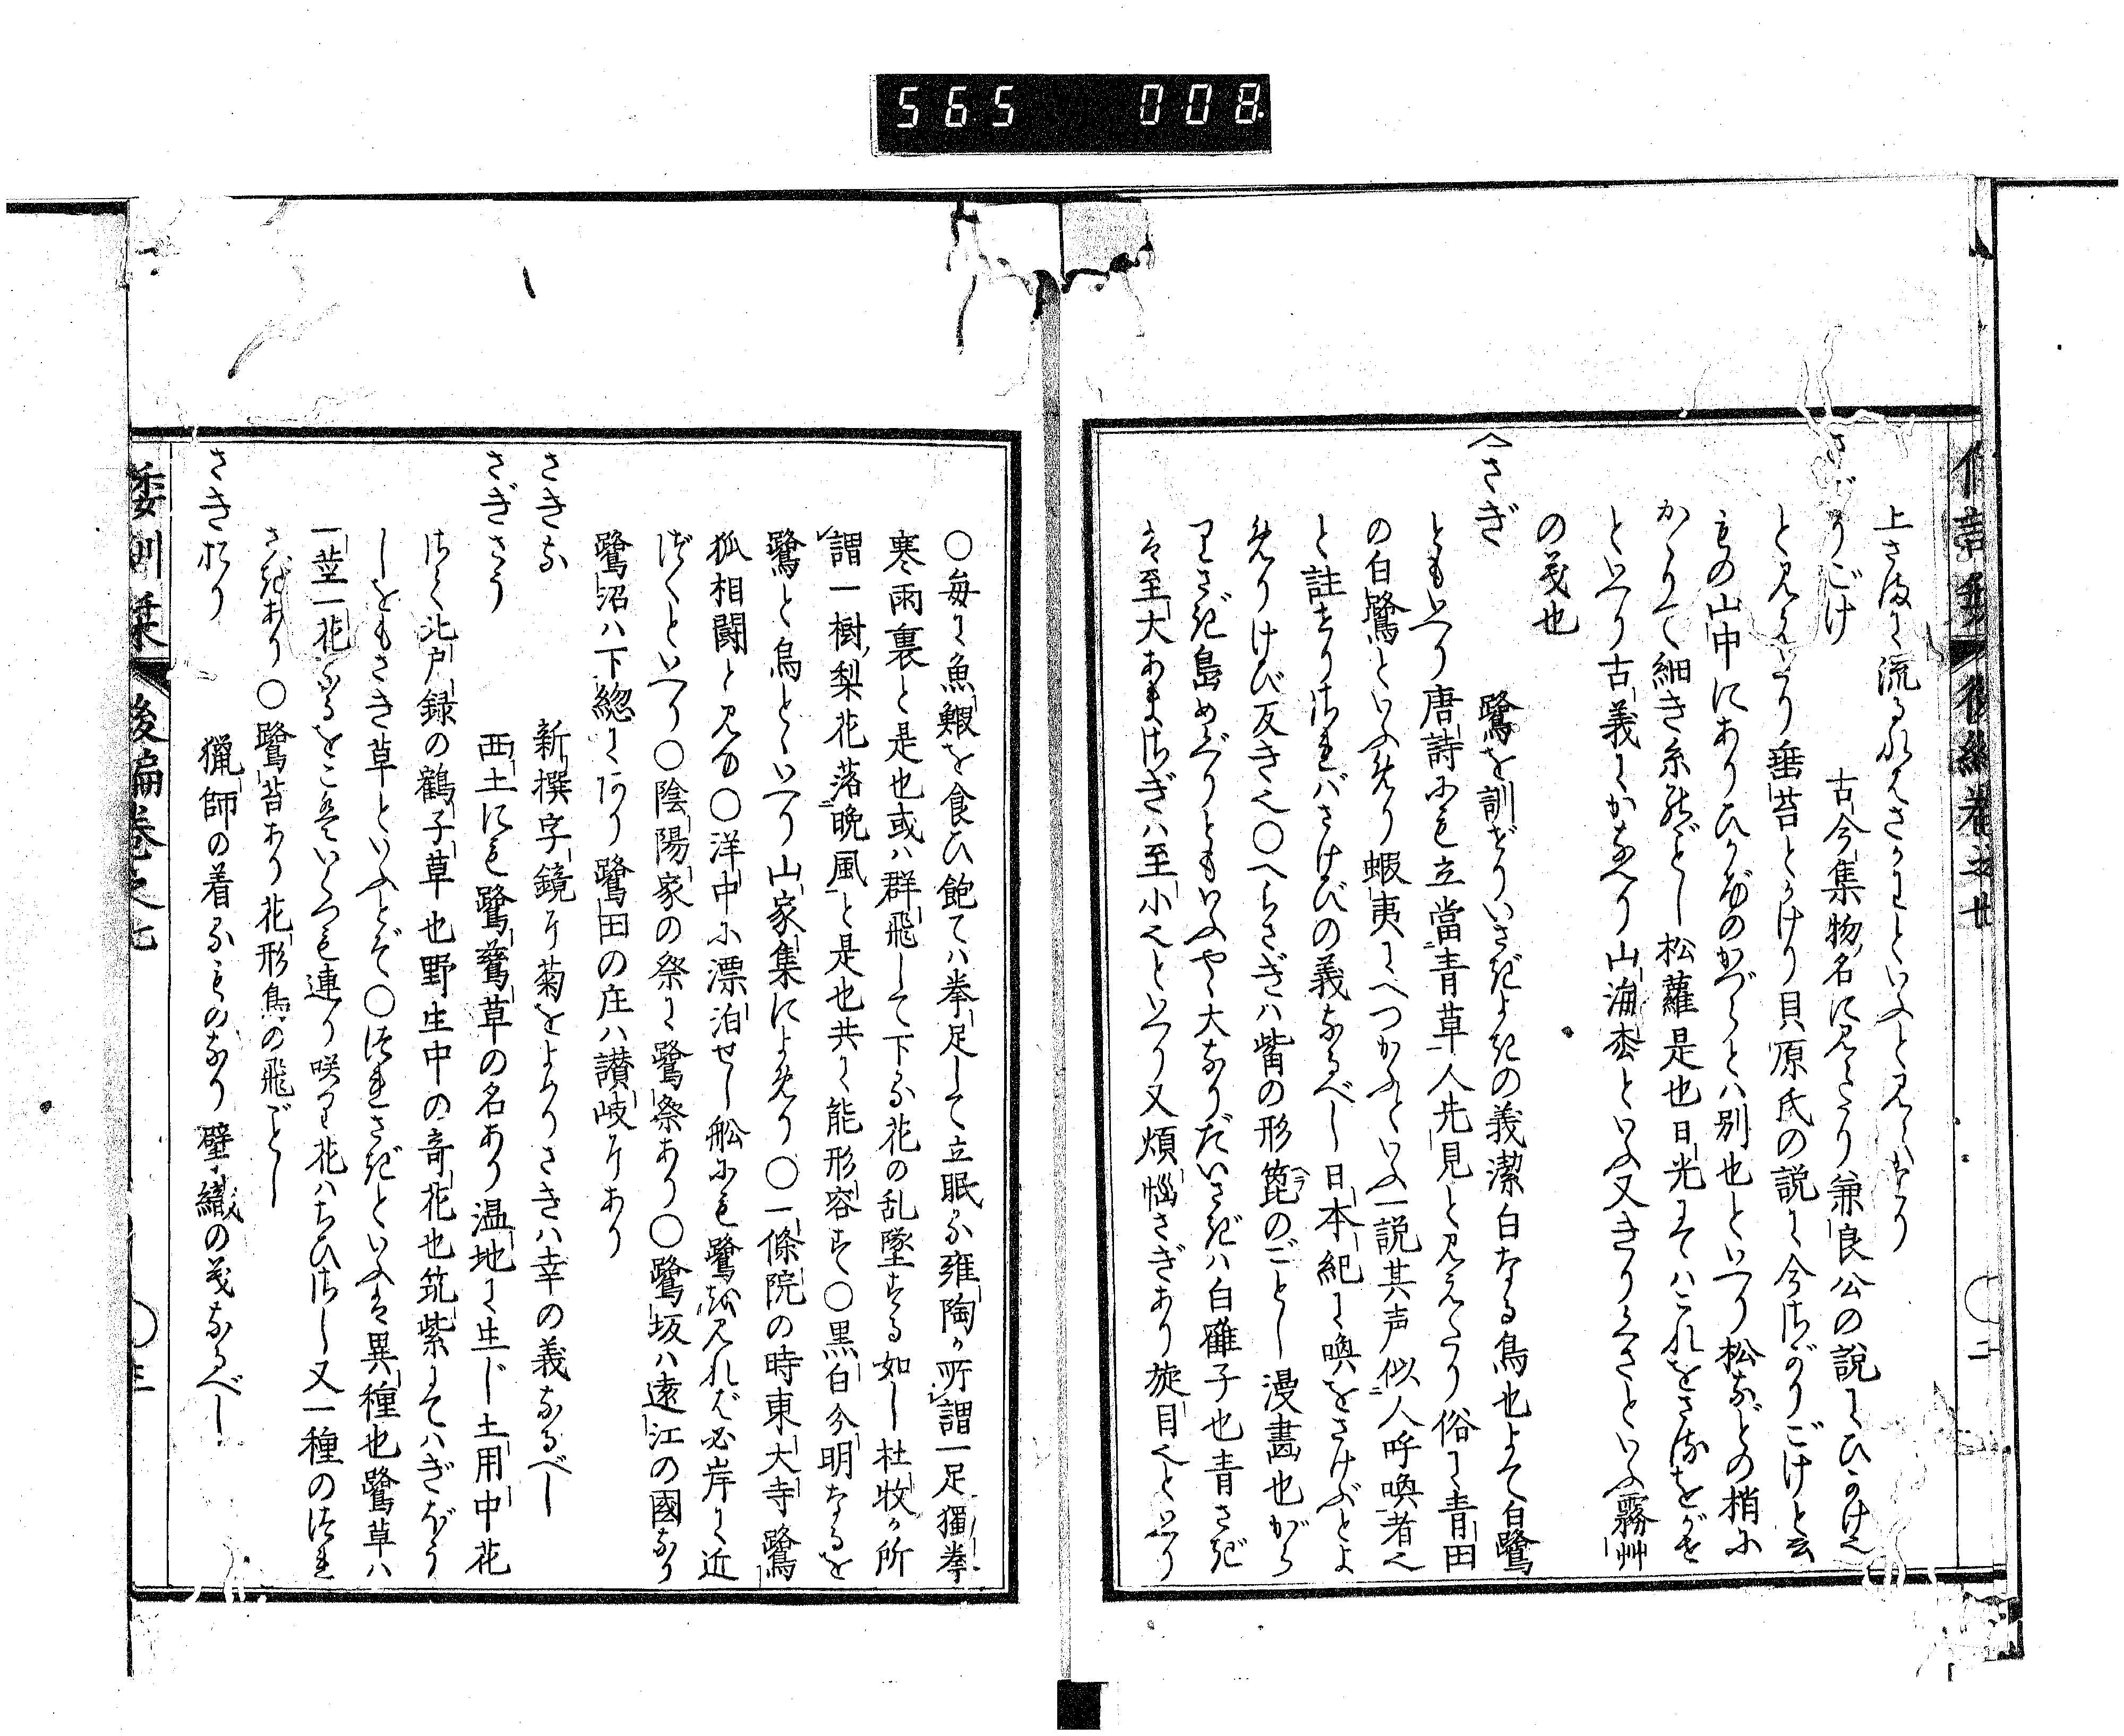 565 008
上さまに流るれはさかさまといふと見えたり
さがりごけ 古今集物名に見えたり兼良公の説にひかけ也
と見えたり垂苔とかけり貝原氏の説に今さがりごけと云
もの山中にありひかげのかづらとハ別也といへり松などの梢に
かかりて細き糸のごとし松蘿是也日光にてハこれをさるをがせ
といへり古義にかなへり山海松といふ又きりくさといふ霧艸
の義也
さぎ 鷺を訓ぜりいさぎよきの義潔白なる鳥也よて白鷺
ともいへり唐詩にも立當青草人先見と見えたり俗に青田
の白鷺といふめり蝦夷にへつかふといふ一説其声似人呼喚者也
と註せりされバさけびの義なるべし日本紀に喚をさけぶとよ
めりけび反き也〇へらさぎハ觜の形箆のごとし漫畫也がら
りさぎ島めぐりともいふやゝ大なりだいさぎハ白雚子也青さぎ
は至大あまさぎハ至小也といへり又煩悩さぎあり旋目也といへり
〇毎に魚鰕を食ひ飽てハ拳足して立眠る雍陶か所謂一足獨拳
寒雨裏と是也或ハ群飛して下る花の乱墜する如し杜牧か所
謂一樹梨花落晩風と是也共に能形容す〇黒白分明なるを
鷺と烏とゝいへり山家集によめり〇一條院の時東大寺鷺
狐相闘と見ゆ〇洋中に漂泊せし舩にも鷺を見れば必岸に近
づくといへり〇陰陽家の祭に鷺祭あり〇鷺坂ハ遠江の國なり
鷺沼ハ下総にあり鷺田の庄ハ讃岐にあり
さきな 新撰字鏡に菊をよめりさきハ幸の義なるべし
さぎさう 西土にも鷺鷥草の名あり温地に生じ土用中花
さく北戸録の鶴子草也野生中の奇花也筑紫にてハぎぼう
しをもさき草といふとぞ〇つれさぎといふは異種也鷺草ハ
一莖一花なるをこはいくつも連り咲り花ハちひさし又一種のつれ
さぎあり〇鷺苔あり花形鳥の飛ごとし
さきおり 獵師の着るものなり襞織の義なるべし
倭訓栞 後編巻之七 〇三
〇二